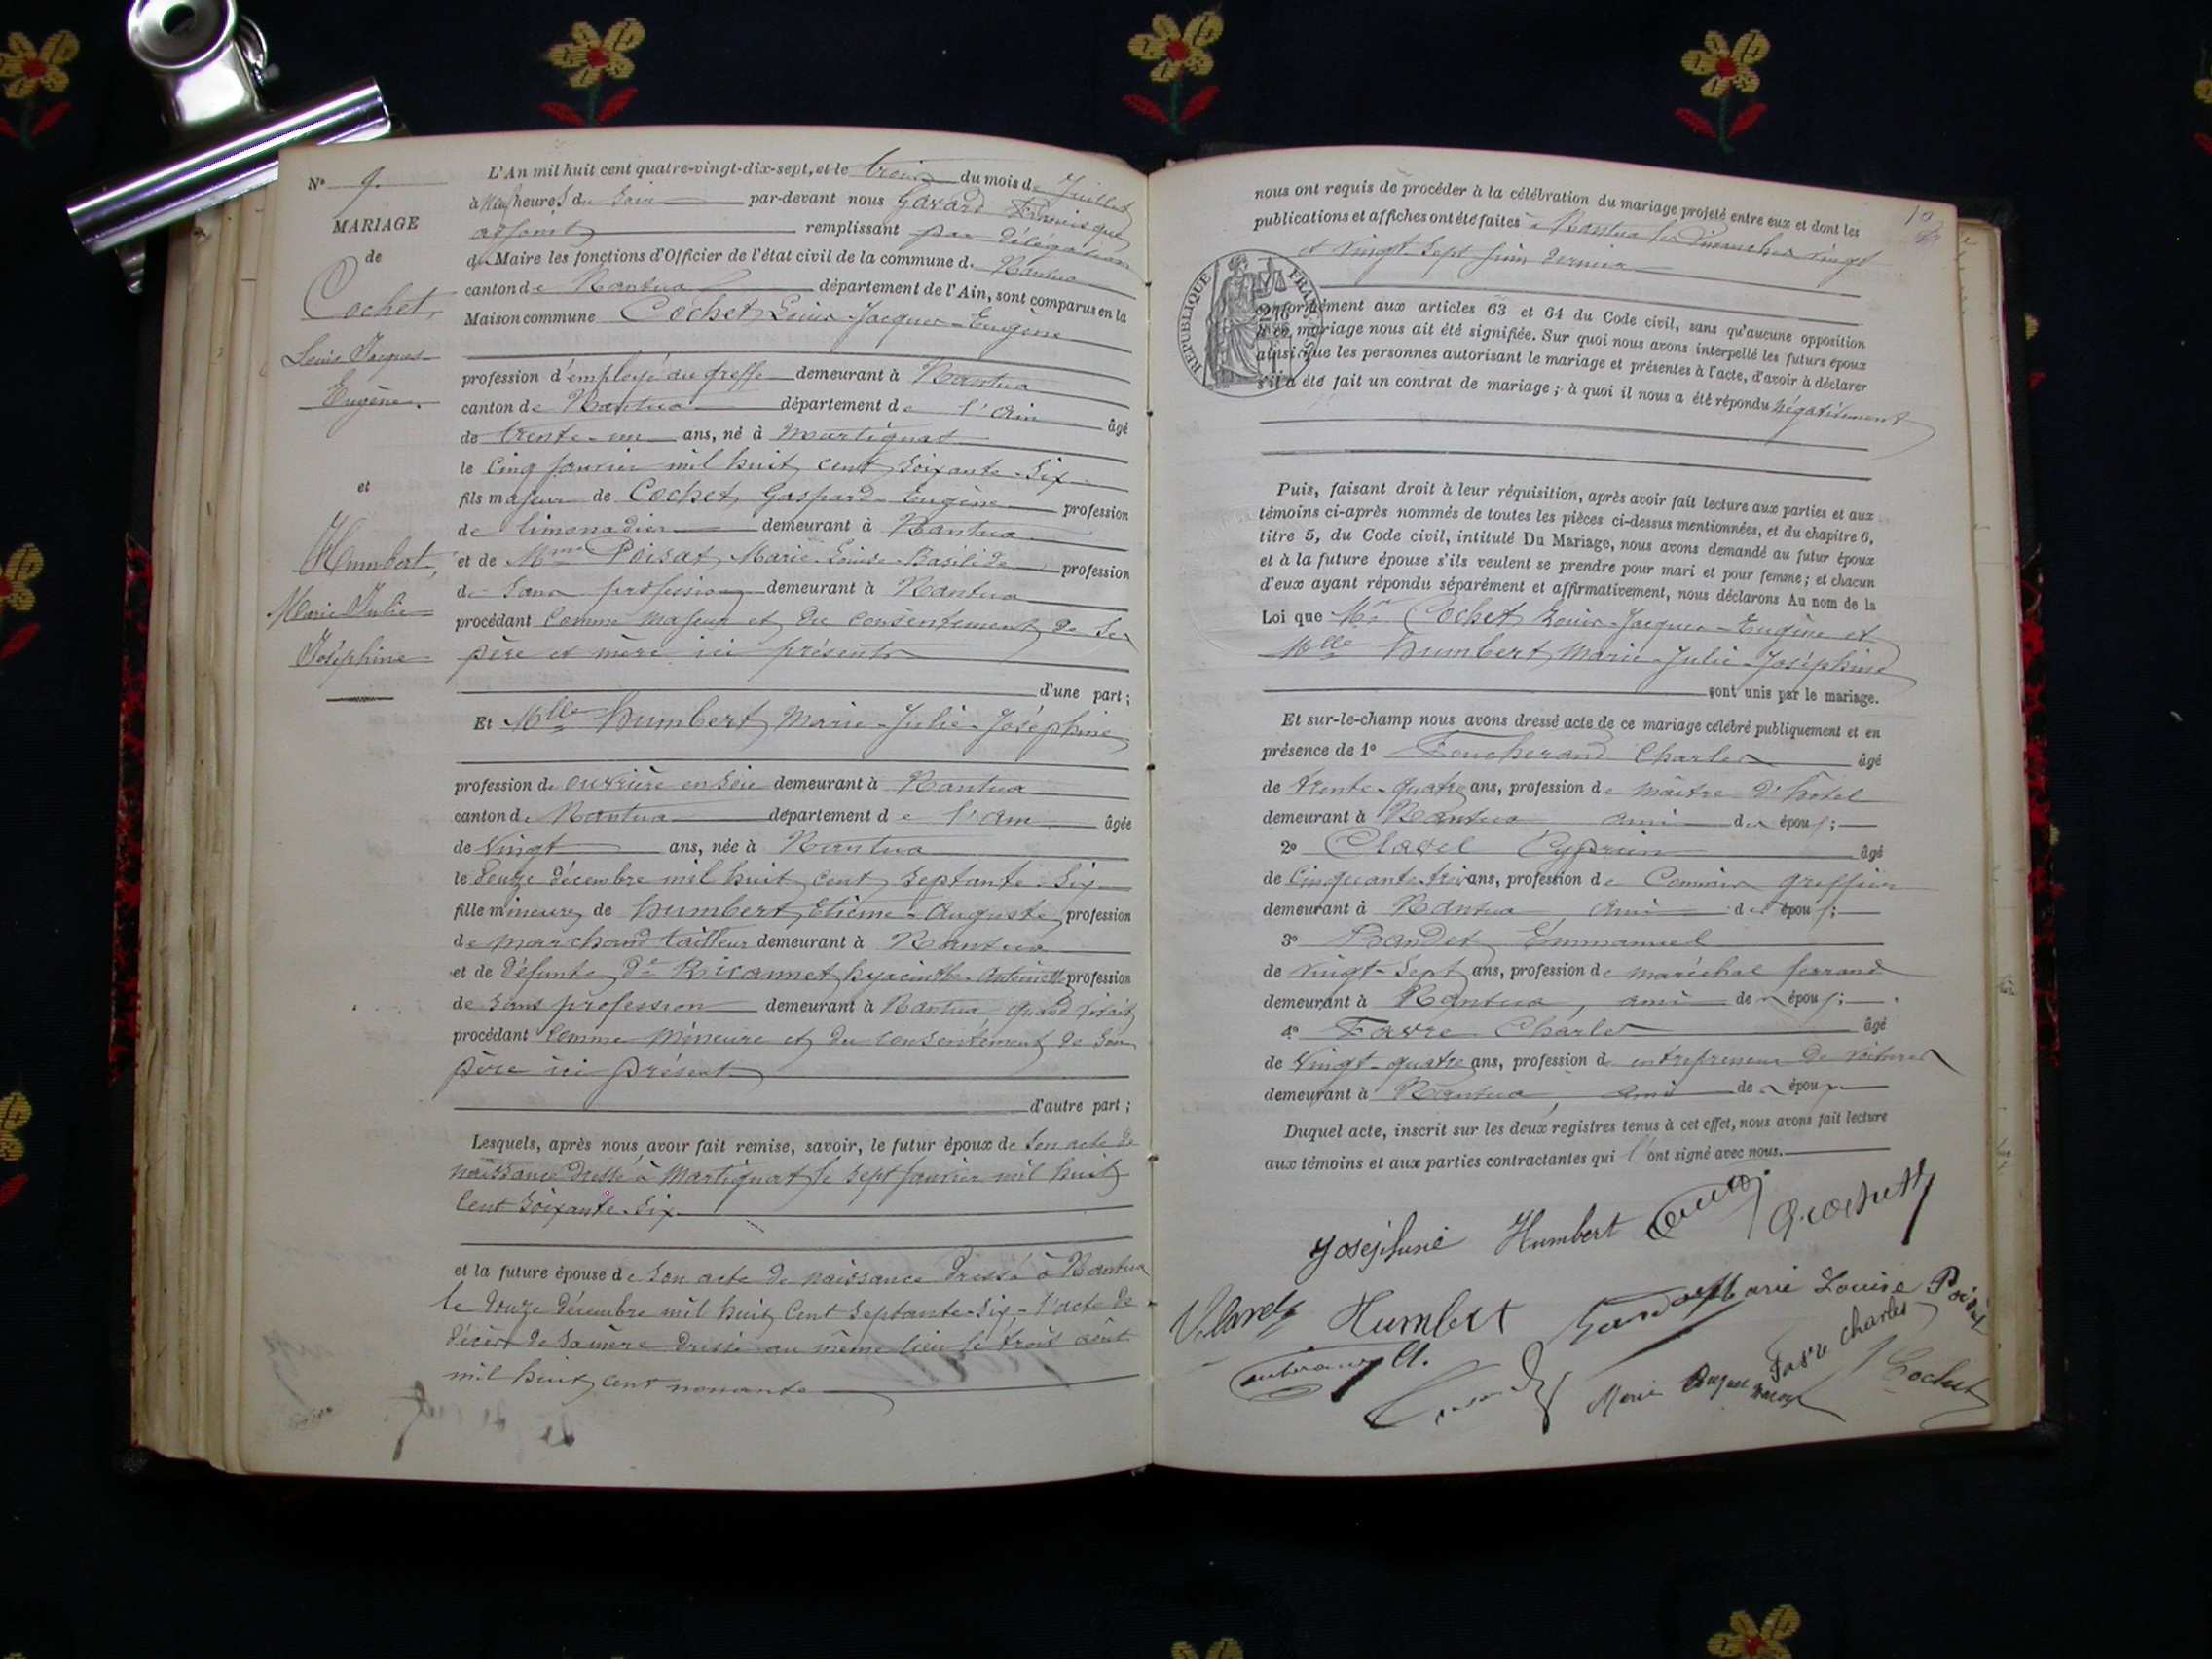 N° 9.
MARIAGE
de
Cochet,
Louis Jacques
Eugène.
et
Humbert,
Marie Julie
Joséphine
L'An mil huit cent quatre-vingt-dix-sept, et le trois du mois de Juillet
à Neuf heures du Soir par-devant nous Gavard Francisque
adjoint remplissant par délégation
du Maire les fonctions d'Officier de l'état civil de la commune de Nantua
canton de Nantua département de l'Ain, sont comparus en la
Maison commune Cochet Louis-Jacques-Eugène
profession d'employé au greffe demeurant à Nantua
canton de Nantua département de l'Ain âgé
de trente-un ans, né à Martignat
le Cinq janvier mil huit cent soixante-six
fils majeur de Cochet Gaspard-Eugène profession
de limonadier demeurant à Nantua
et de Mme Poisat Marie-Louise-Basilide profession
de Sans profession demeurant à Nantua
procédant Comme Majeur et du consentement de ses
père et mère ici présents
d'une part ;
Et Mlle Humbert Marie-Julie-Joséphine
profession de ouvrière en soie demeurant à Nantua
canton de Nantua département de l'Ain âgée
de Vingt ans, née à Nantua
le douze décembre mil huit cent septante-six
fille mineure de Humbert Etienne-Auguste profession
de marchand tailleur demeurant à Nantua
et de défunte de Hyacinthe-Antoinette profession
de Sans profession demeurant à Nantua, quand vivait
procédant Comme Mineure et du consentement de son
père ici présent
d'autre part ;
Lesquels, après nous avoir fait remise, savoir, le futur époux de Son acte de
naissance dressé à Martignat le sept janvier mil huit
cent soixante-six
et la future épouse de Son acte de naissance dressé à Nantua
le douze décembre mil huit cent septante-six, l'acte de
décès de sa mère dressé au même lieu le trois août
mil huit cent nonante
10
nous ont requis de procéder à la célébration du mariage projeté entre eux et dont les
publications et affiches ont été faites à Nantua les Dimanches vingt
et vingt-sept juin dernier
REPUBLIQUE FRANÇAISE
conformément aux articles 63 et 64 du Code civil, sans qu'aucune opposition
à ce mariage nous ait été signifiée. Sur quoi nous avons interpellé les futurs époux
ainsi que les personnes autorisant le mariage et présentes à l'acte, d'avoir à déclarer
s'il a été fait un contrat de mariage ; à quoi il nous a été répondu Négativement
Puis, faisant droit à leur réquisition, après avoir fait lecture aux parties et aux
témoins ci-après nommés de toutes les pièces ci-dessus mentionnées, et du chapitre 6,
titre 5, du Code civil, intitulé Du Mariage, nous avons demandé au futur époux
et à la future épouse s'ils veulent se prendre pour mari et pour femme ; et chacun
d'eux ayant répondu séparément et affirmativement, nous déclarons Au nom de la
Loi que Mr Cochet Louis-Jacques-Eugène et
Mlle Humbert Marie-Julie-Joséphine
sont unis par le mariage.
Et sur-le-champ nous avons dressé acte de ce mariage célébré publiquement et en
présence de 1° Foucherand Charles âgé
de trente-quatre ans, profession de maître d'hôtel
demeurant à Nantua ami des époux ;
2° Clavel Cyprien âgé
de Cinquante-trois ans, profession de Commis greffier
demeurant à Nantua, ami des époux ;
3° Emmanuel
de vingt-sept ans, profession de maréchal ferrand
demeurant à Nantua, ami des époux ;
4° Favre Charles âgé
de Vingt-quatre ans, profession d entrepreneur de voitures
demeurant à Nantua, ami des époux
Duquel acte, inscrit sur les deux registres tenus à cet effet, nous avons fait lecture
aux témoins et aux parties contractantes qui l'ont signé avec nous.
Joséphine Humbert
Humbert Marie Louise
Favre Charles
Marie Cochet